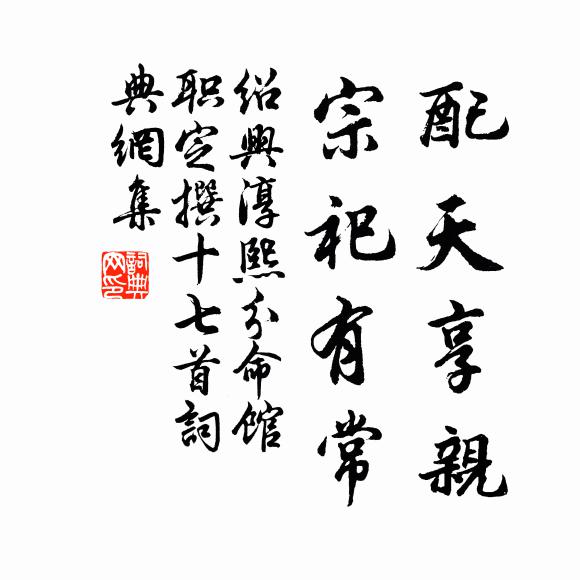 配天享親
宗祀有常
绍興淳熙分命館
职定撰十七首詞
典網集
詞典网印